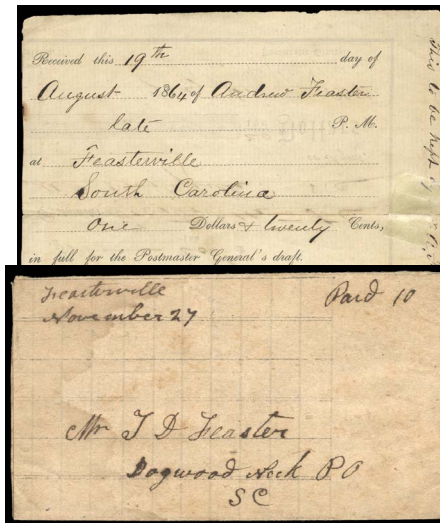 Received this 19th day of
August 1864 of Andrew Feaster
late P. M.
at Feasterville
South Carolina
One Dollars & twenty Cents,
in full for the Postmaster General's draft.
This to be kept by
Feasterville
November 27
Paid 10
Mr J D Feaster
Dogwood Neck P O
S C